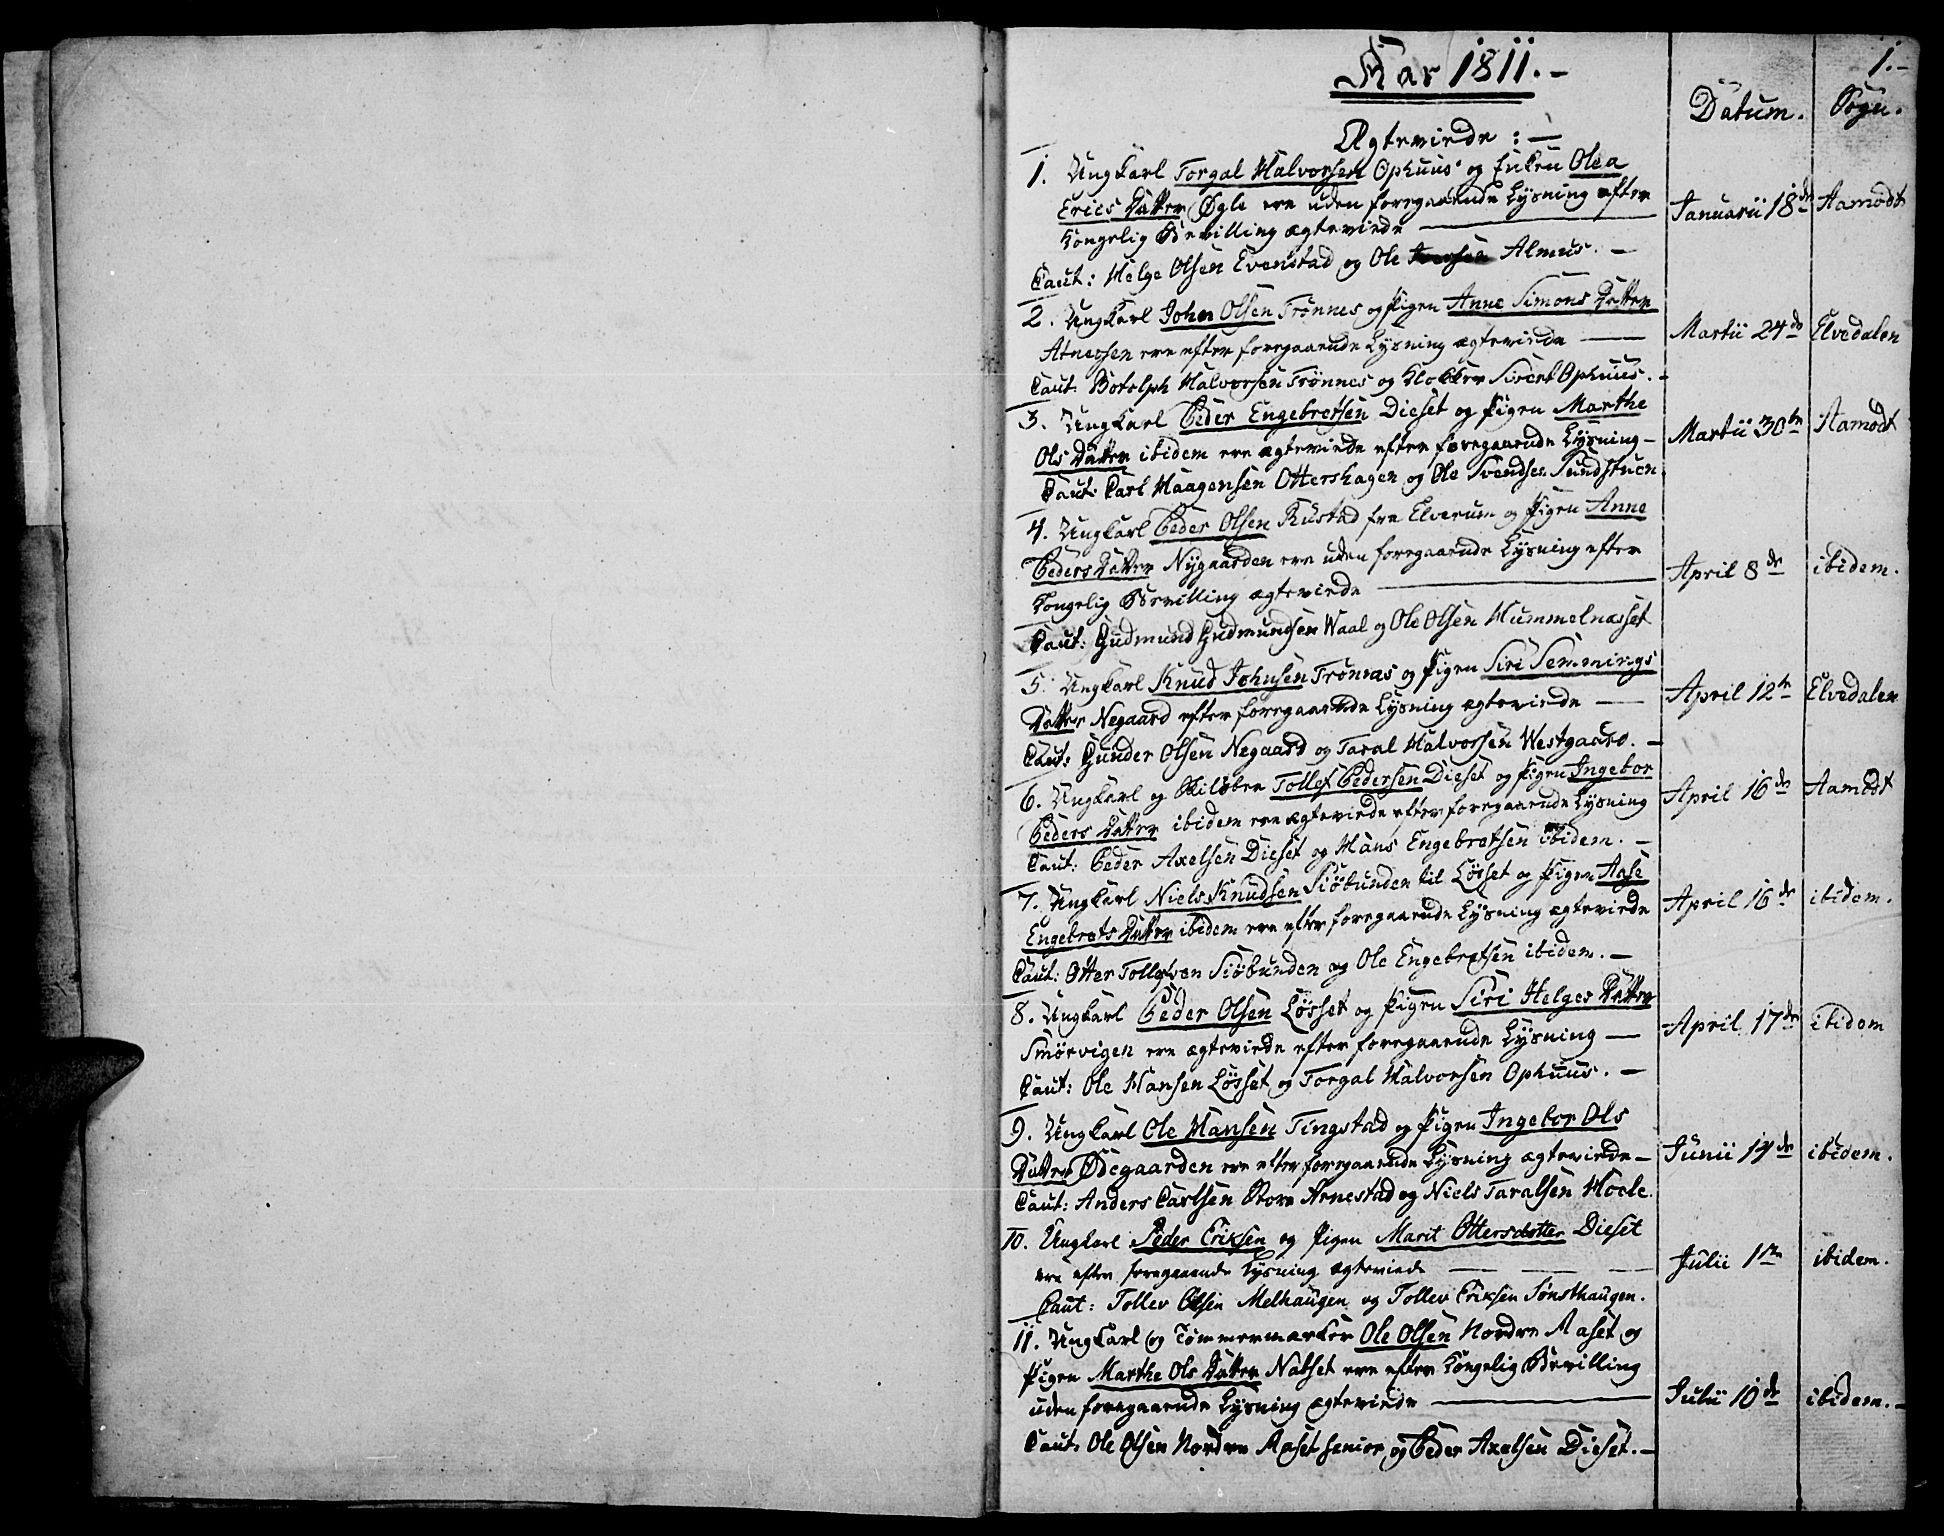 1.-
Aar 1811.-
Datum.
Sogn.
Ægteviede:-
1. Ungkarl Torgal Halvorsen Ophuus og Enken Olea
Erics Datter Øgle ere uden foregaaende Lysning efter
Kongelig Bevilling ægteviede
Januarii 18de Aamodt
Caut: Helge Olsen Evenstad og Ole Almus.-
2. Ungkarl John Olsen Trønnes og Pigen Anne Simons Datter
Atneosen ere efter foregaaende Lysning ægteviede
Martii 24de Elvedalen
Caut: Botolph Halvorsen Trønnes og Klokker Sivert Ophuus.-
3. Ungkarl Peder Engebretsen Dieset og Pigen Marthe
Ols Datter ibidem ere ægteviede efter foregaaende Lysning-
Martii 30te Aamodt
Caut: Carl Haagensen Ottershagen og Ole Svendsen Sundstuen
4. Ungkarl Peder Olsen Rustad fra Elverum og Pigen Anne
Peders Datter Nygaarden ere uden foregaaende Lysning efter
Kongelig Bevilling ægteviede
April 8de ibidem.
Caut: Gudmund Gudmundsen Waal og Ole Olsen Hummelnæsset
5. Ungkarl Knud Johnsen Trønnæs og Pigen Siri Semmings
Datter Negaard efter foregaaende Lysning ægteviede
April 12te Elvedalen
Caut: Gunder Olsen Negaard og Taral Halvorsen Westgaard.-
6. Ungkarl og Skiløber Tollef Pedersen Dieset og Pigen Ingebor
Peders Datter ibidem ere ægteviede efter foregaaende Lysning
April 16de Aamodt
Caut: Peder Axelsen Dieset og Hans Engebretsen ibidem.-
7. Ungkarl Niels Knudsen Siöbunden til Løsset og Pigen Aase
Engebrets Datter ibidem ere efter foregaaende Lysning ægteviede
April 16de ibidem.
Caut: Otter Tollefsen Siöbunden og Ole Engebretsen ibidem.-
8. Ungkarl Peder Olsen Løsset og Pigen Siri Helges Datter
Smörvigen ere ægteviede efter foregaaende Lysning
April 17de ibidem
Caut: Ole Hansen Løsset og Torgal Halvorsen Ophuus.-
9. Ungkarl Ole Hansen Tingstad og Pigen Ingebor Ols
Datter Ødegaarden ere efter foregaaende Lysning ægteviede-
Junii 14de ibidem.
Caut: Anders Carlsen Store Arnestad og Niels Taralsen Hoele.
10. Ungkarl Peder Eriksen og Pigen Marit Ottersdotter Dieset
ere efter foregaaende Lysning ægteviede
Julii 1te ibidem.
Caut: Tollev Olsen Melhaugen og Tollev Eriksen Sønsthaugen.
11. Ungkarl og Tømmermærker Ole Olsen Nordre Aaset og
Pigen Marthe Ols Datter Nabset ere efter Kongelig Bevilling
uden foregaaende Lysning ægteviede
Julii 10de ibidem.-
Caut: Ole Olsen Nordre Aaset senior og Peder Axelsen Dieset.-